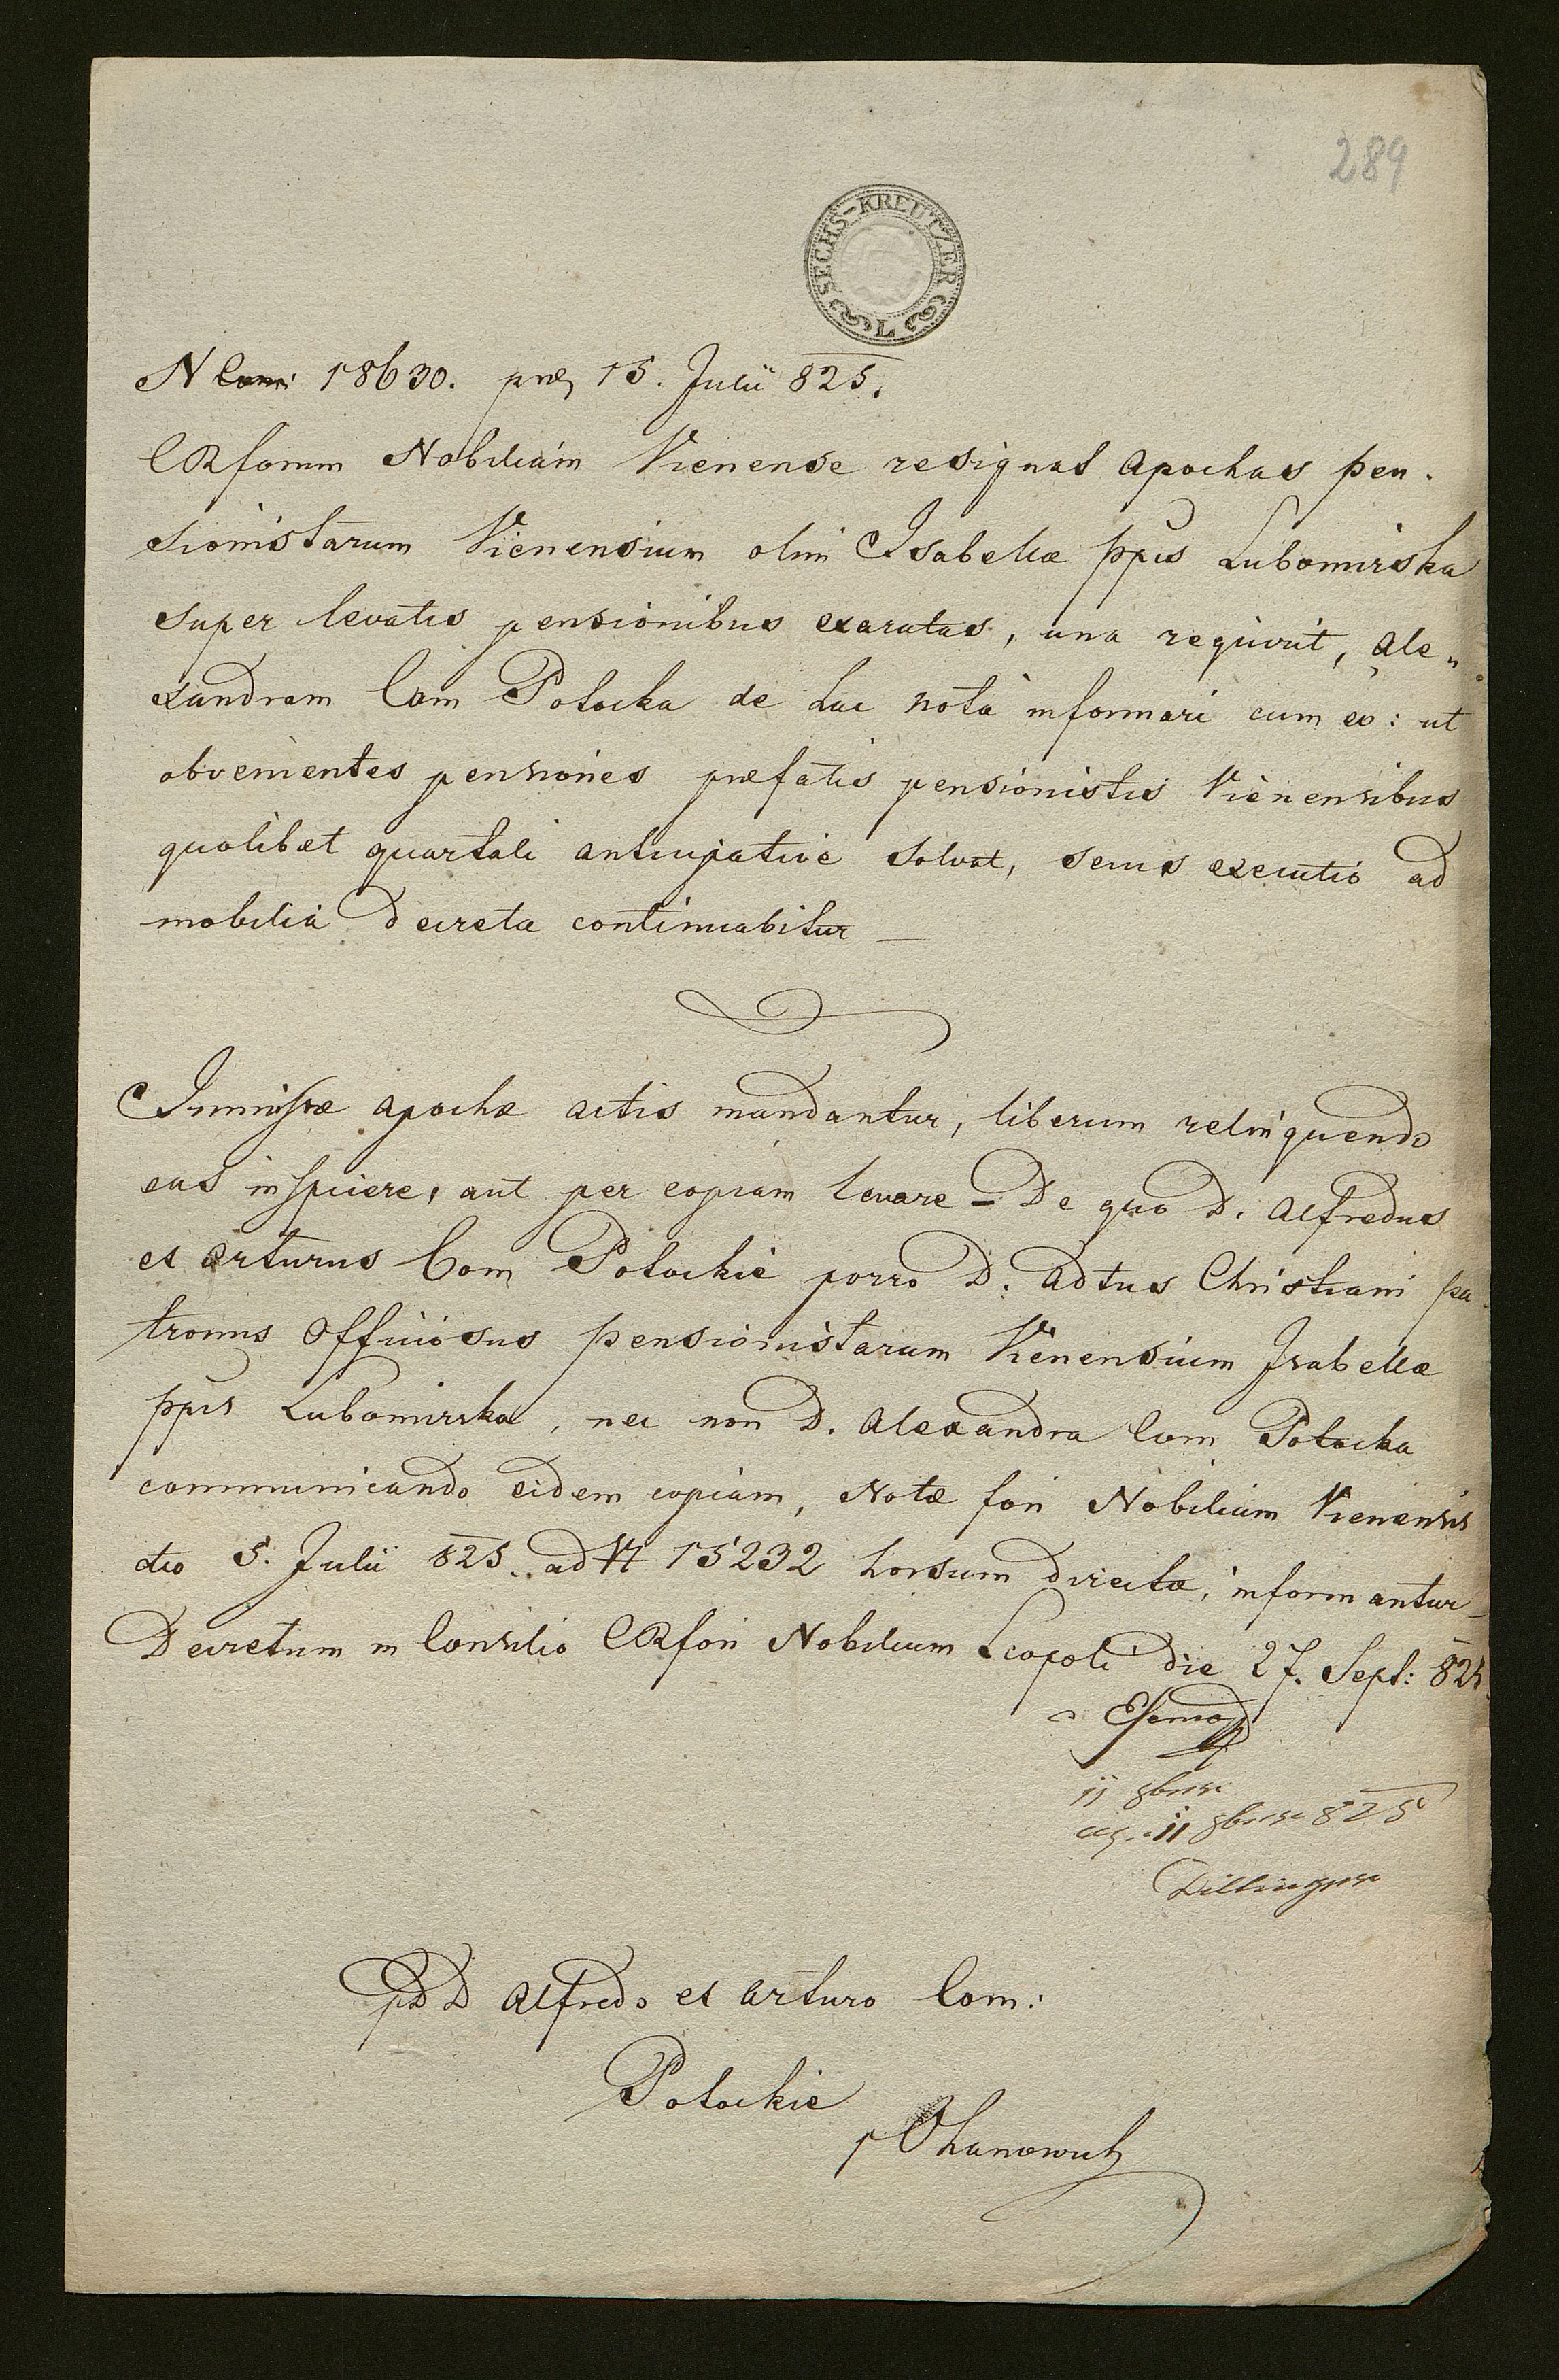 289
SECHS-KREUTZER
L
N 18630. præs 15. Julii 825.
CRforum Nobilium Vienense resignat apochas pen-
sionistarum Vienensium olim Isabellæ ppis Lubomirska
super levatis pensionibus exaratas, una requirit, Ale„
xandram Com Potocka de hac nota informari cum eo: ut
obvenientes pensiones præfatis pensionistis Vienensibus
quolibet quartali anticipative solvat, secus executio ad
mobilia decreta continuabitur —
Immissæ apochæ actis mandantur, liberum relinquendo
eas inspicere, aut per copiam levare – De quo D. Alfredus
et Arturus Com Potockie porro D. Adtus Christiani pa
tronus Officiosus pensionistarum Vienensium Isabellæ
ppis Lubomirska, nec non D. Alexandra Com Potocka
communicando eidem copiam, Notæ fori Nobilium Vienensis
dto 5. Julii 825. ad N 15232 horsum directæ, informantur –
Decretum in Consilio CRfori Nobilium Leopoli die 27. Sept: 825.
11 8bris
11 8bris 825
Dillinger
pDD Alfredo et Arturo Com:
Potockie